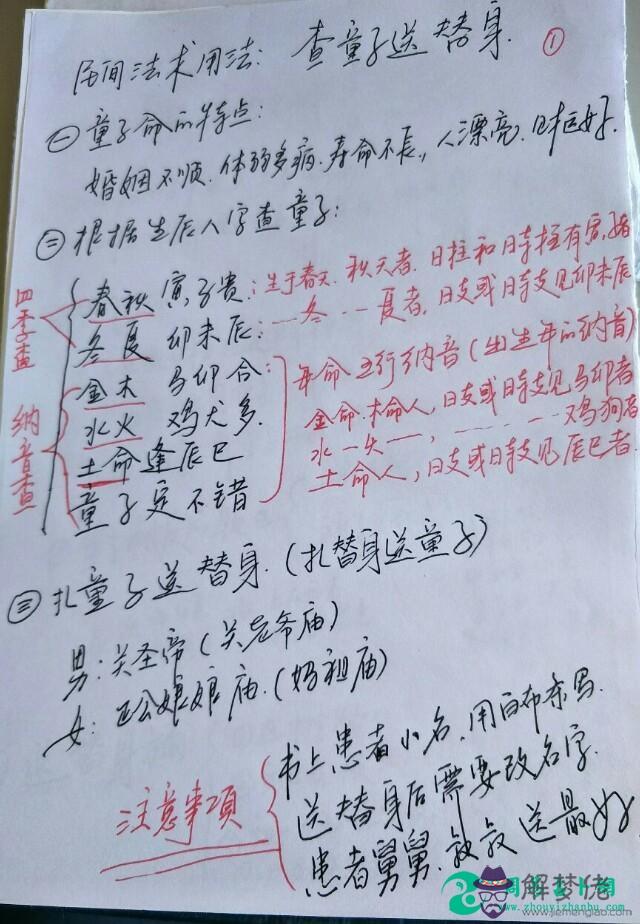 民间法术用法: 查童子送替身. ①
㊀童子命的特点:
婚姻不顺.体弱多病.寿命不长,人漂亮.
㊁根据生辰八字查童子:
四季查
春秋 寅子贵:生于春天.秋天者.日柱和时柱有寅.子者
冬夏 卯未辰:--冬--夏者,日支或日時支见卯未辰
纳音查
金木 马卯合:
年命五行纳音(出生年的纳音)
水火 鸡犬多.
金命.木命人,日支或日時支见马卯者
水--火--, ------鸡狗者
土命逢辰巳
土命人,日支或日時支见辰巳者.
童子定不错
㊂扎童子送替身.(扎替身送童子)
男:关圣帝(关老爷庙)
女: 娘娘庙.(妈祖庙)
注意事項
书上患者小名.用白布条写.
送替身后需要改名字.
患者舅舅.叔叔送最好
解梦佬
www.zhouyizhanbu.com
www.jiemenglao.com